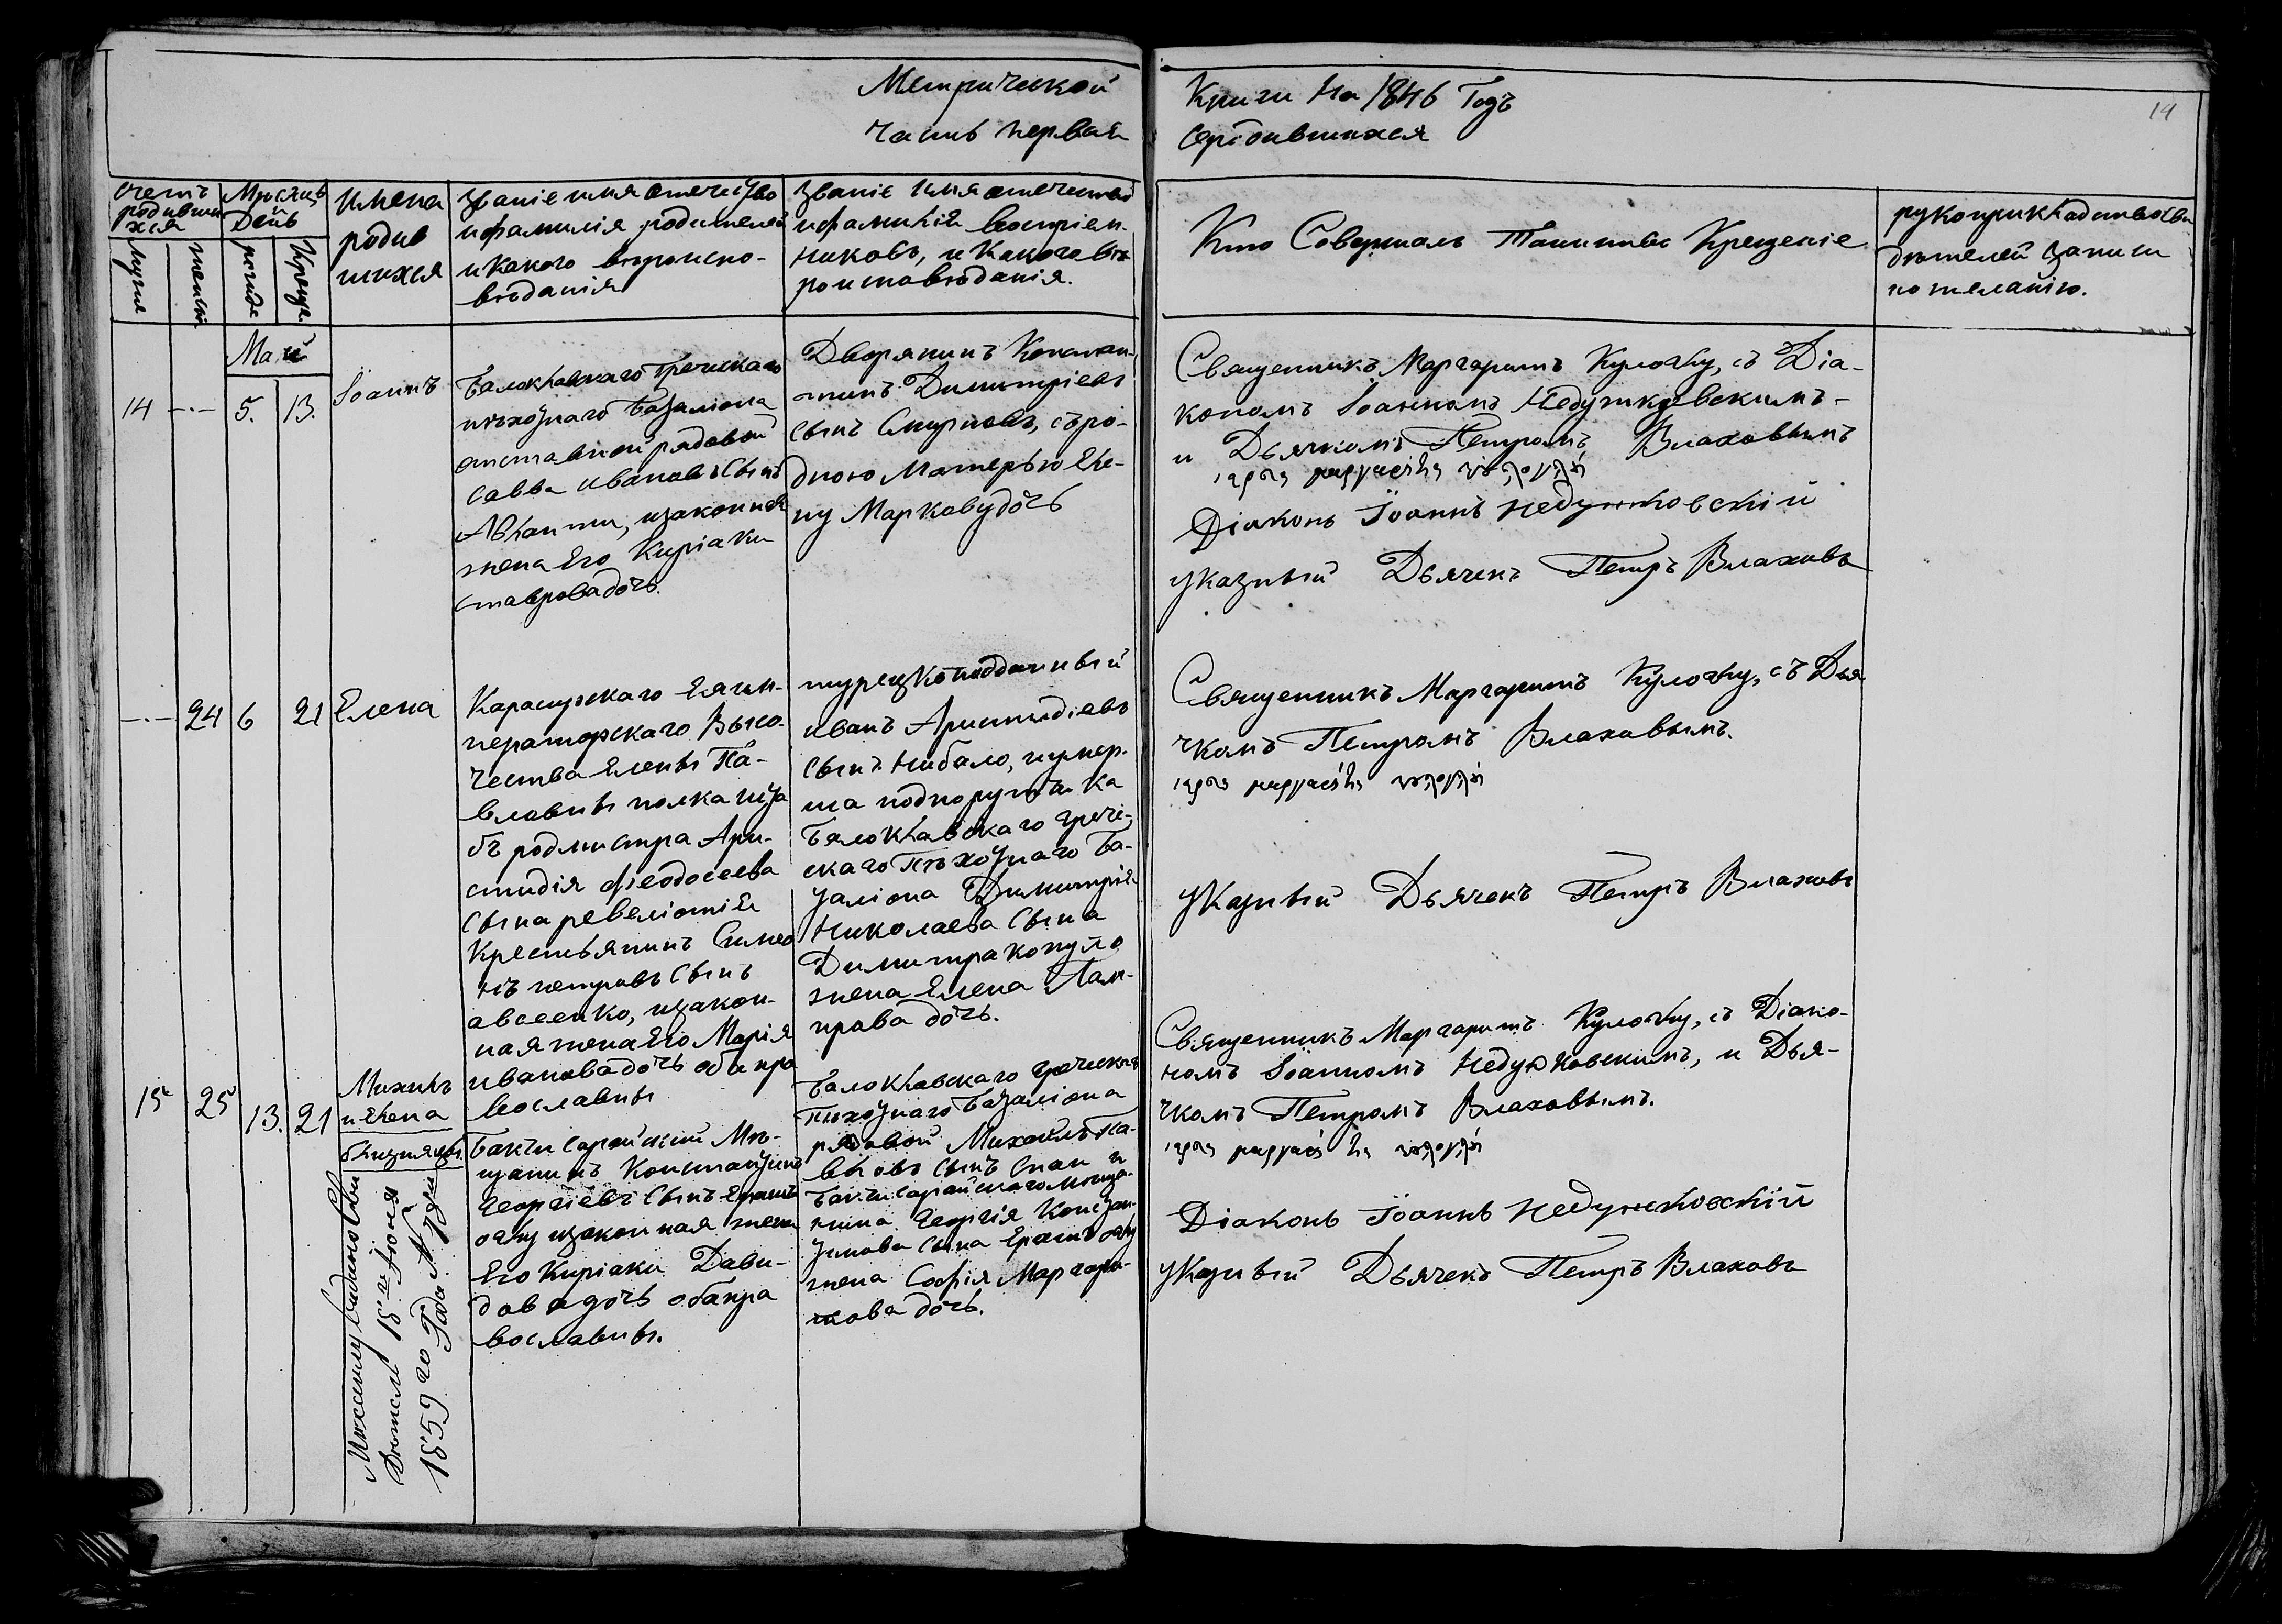 Метрической
Часть первая
Книги На 1846 Годъ
14
Счетъ родивши хся
Мѣсяцъ День
Имена родив шихся
Званіе имя отечество
и фамилія родителей
и какого вѣроиспо-
вѣданія
Званіе Имя отечество
и фамилія воспріем-
никовъ, и Какого вѣ
роисповѣданія.
Кто Совершалъ Таинство Крещеніе
рукоприкладство сви
дѣтелей записи
по желанію.
Май
14 -·- 5. 13.
Іоаннъ
Балоклавскаго Греческаго
пѣхотнаго Баталіона
отставной рядовой
Савва Ивановъ Сынъ
жена Его Киріаки
Ставрова дочь.
Дворянинъ Констан-
тинъ Димитріевъ
сынъ Смирновъ, съ ро-
дною Матерью Еле-
ну Маркову дочь
Священникъ Маргаритъ Кулоглу, съ Діа-
кономъ Іоанномъ Недужковскимъ-
и Дьячкомъ Петромъ Влаховымъ
Діаконъ Іоаннъ Недужковскій
указный Дьячекъ Петръ Влаховъ
-·- 24 6 21 Елена
Карасузскаго Ея им-
ператорскаго Высо-
чества Елены Па-
вловны полка шта
бъ родмистра Ари-
стидія Феодосеева
Сына ревеліотія
Крестьянинъ Симео
нъ петровъ Сынъ
авсеенко, изакон-
ная жена Его Марія
иванова дочь оба пра
вославны
турецкоподданный
иванъ Аристидіевъ
Сынъ Нибало, иумер-
ша подпоручика
Балоклавскаго грече-
скаго Пѣхотнаго Ба-
таліона Димитрія
Николаева Сына
Димитракопуло
жена Елена Лам-
прова дочь.
Священникъ Маргаритъ Кулоглу, съ Дья
чкомъ Петромъ Влаховымъ.
указный Дьячекъ Петръ Влаховъ
15 25 13. 21
Михаилъ
и Елена
близнецы
Бакчисарайскій Мѣ-
щанинъ Константинъ
Георгіевъ Сынъ
оглу изаконная жена
Его Киріаки Дави-
дова дочь оба пра
вославны.
Балоклавскаго греческая
Пѣхотнаго Баталіона
рядовой Михаилъ Па-
вловъ сынъ Спаи и
Бакчисарайскаго мѣща-
нина Георгія Констан-
тинова сына
жена Софія Маргари-
това дочь.
Священникъ Маргаритъ Кулоглу, съ Діако-
номъ Іоанномъ Недужковскимъ, и Дья-
чкомъ Петромъ Влаховымъ.
Діаконъ Іоаннъ Недужковскій
указный Дьячекъ Петръ Влаховъ
Михаилу выдано Сви
дѣтель 18го Іюня
1859го Года №